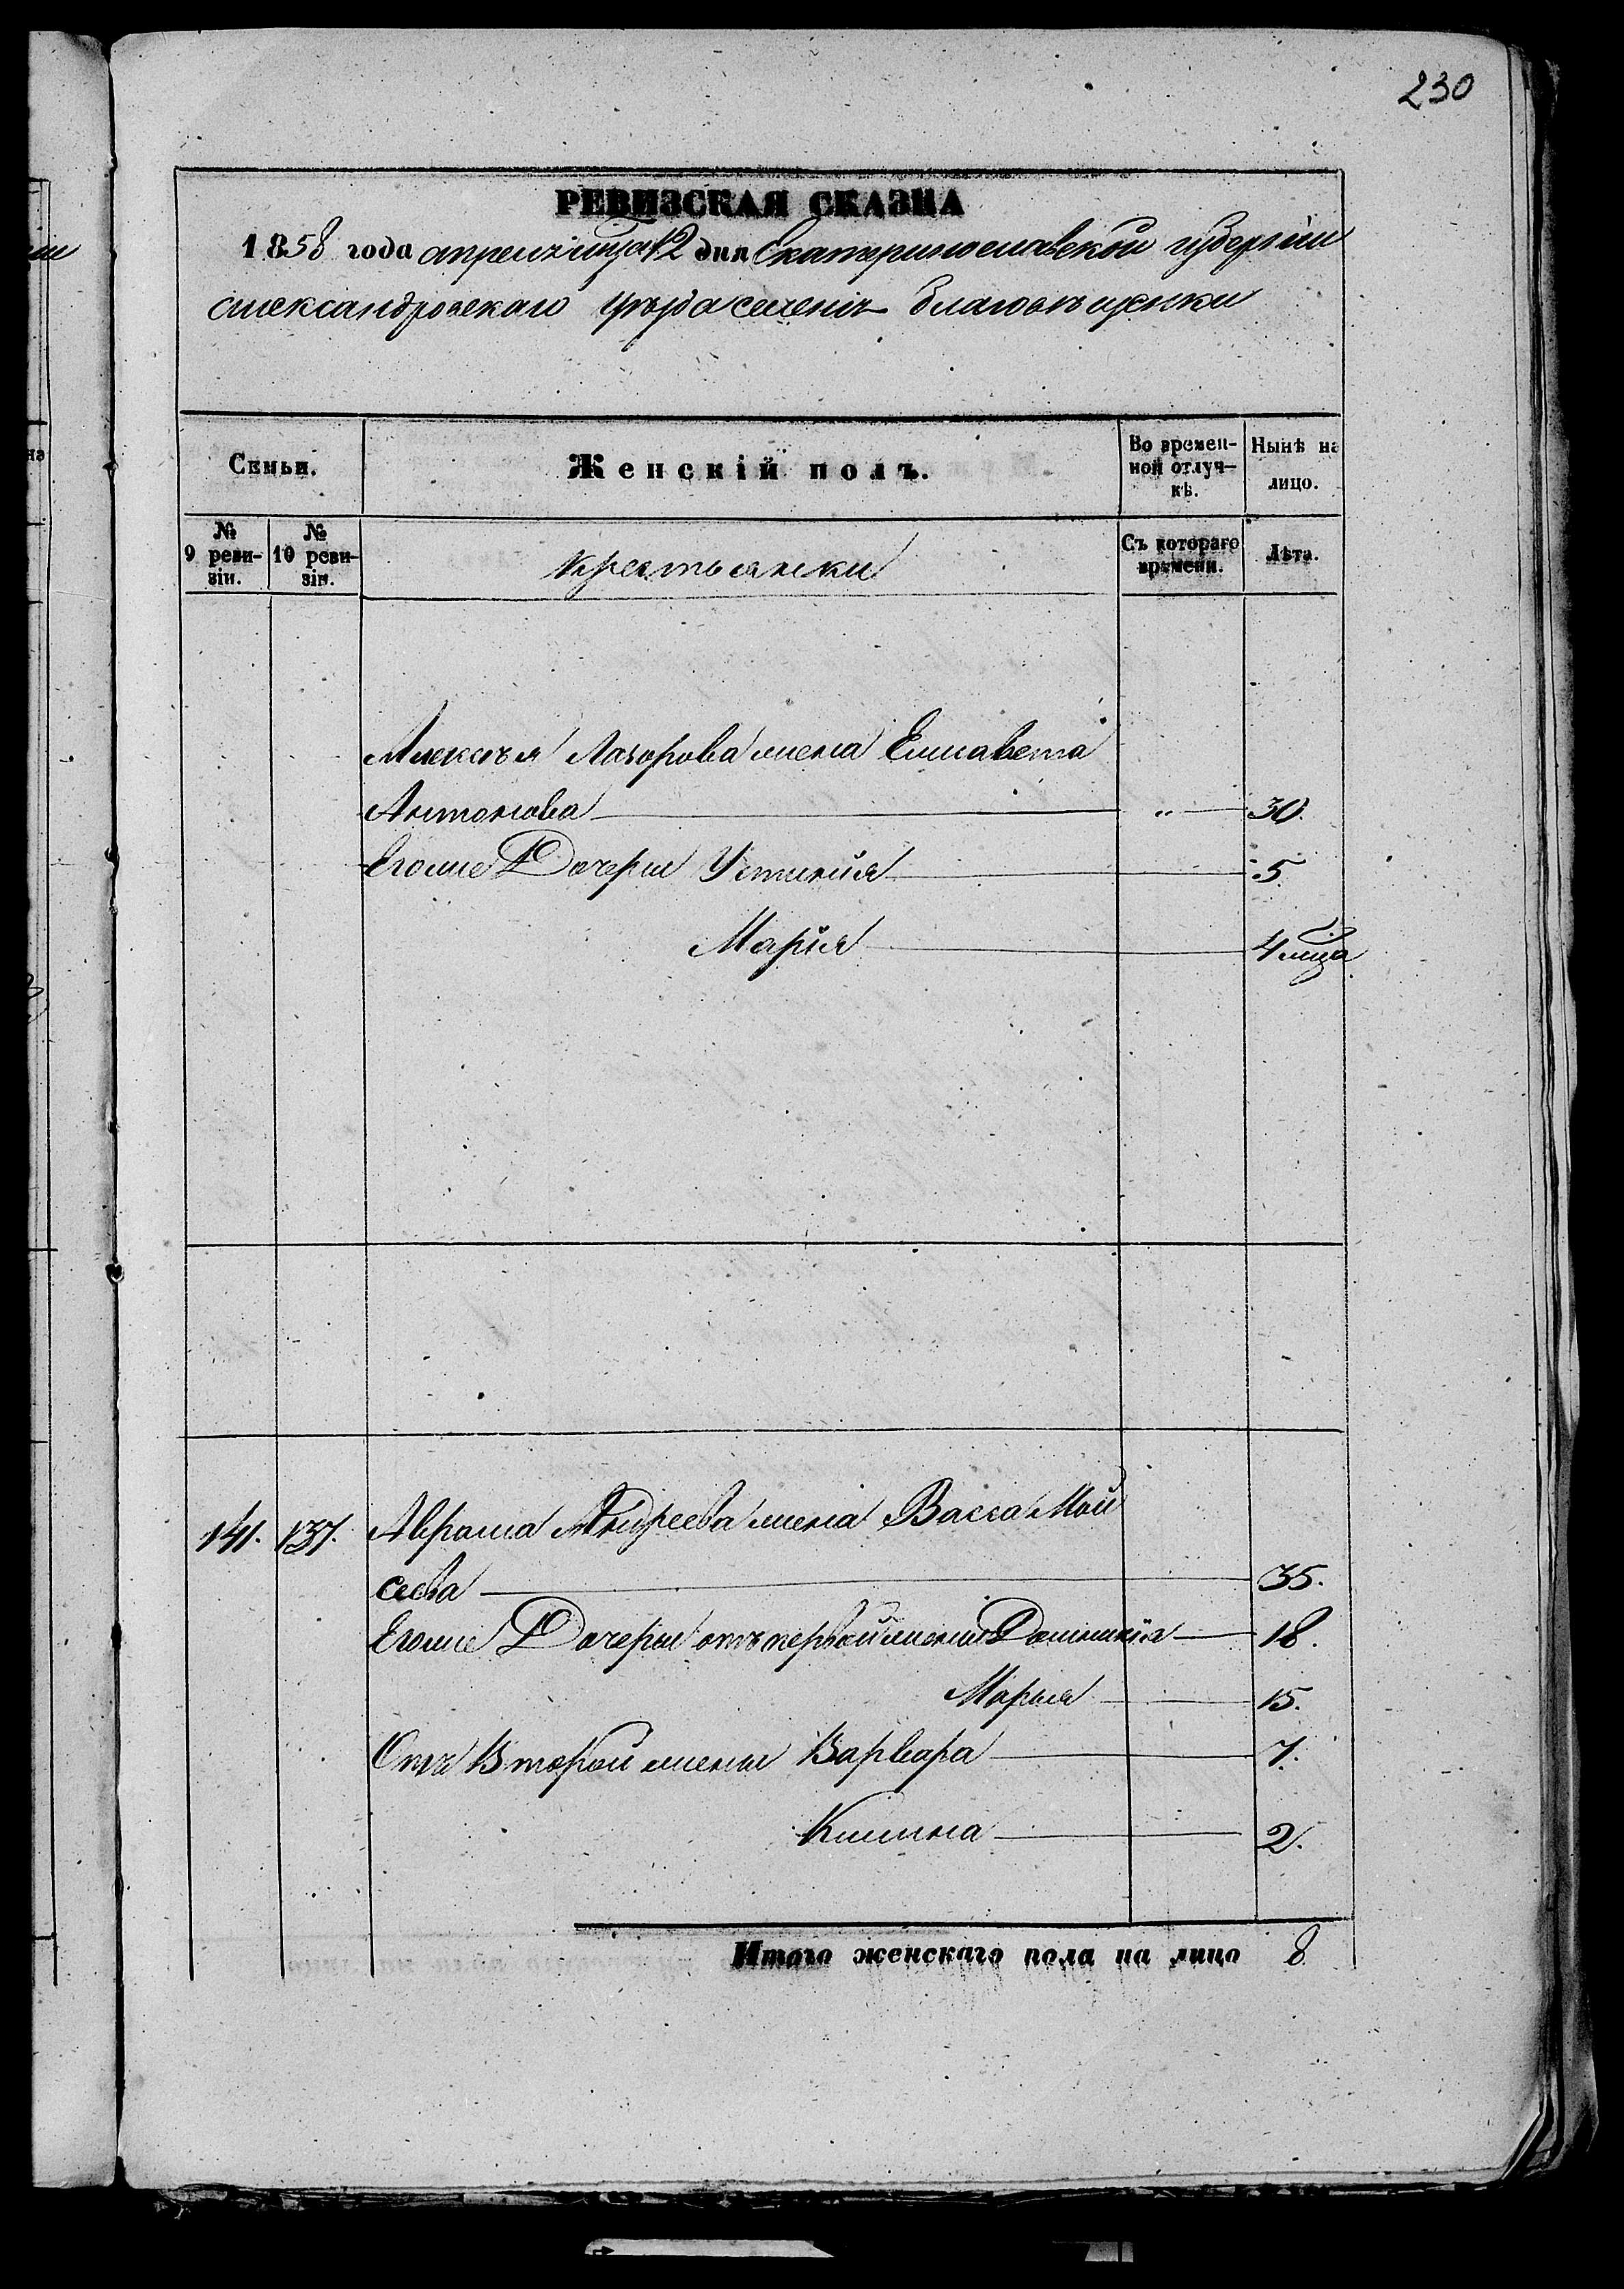 230
РЕВИЗСКАЯ СКАЗКА
1858 года апреля мца 12 дня Екатеринославской губерніи
Александровскаго уѣзда селенія Благовѣщенки
Семьи.
Женскій полъ.
Во времен-
ной отлуч-
кѣ.
Нынѣ на
лицо.
№
9 реви-
зіи.
№
10 реви-
зіи.
крестьянки
Съ котораго
времени.
Лѣта.
Алексѣя Лазорова жена Елисавета
Антонова " 30.
Егоже Дочери Устинія 5.
Марія 4 мца
141. 137. Аврама Андреева жена Васса Мой
сеева 35.
Егоже Дочери отъ первой жены Домникія 18.
Марья 15.
Отъ Второй жены Варвара 7.
Килина 2.
Итого женскаго пола на лицо 8